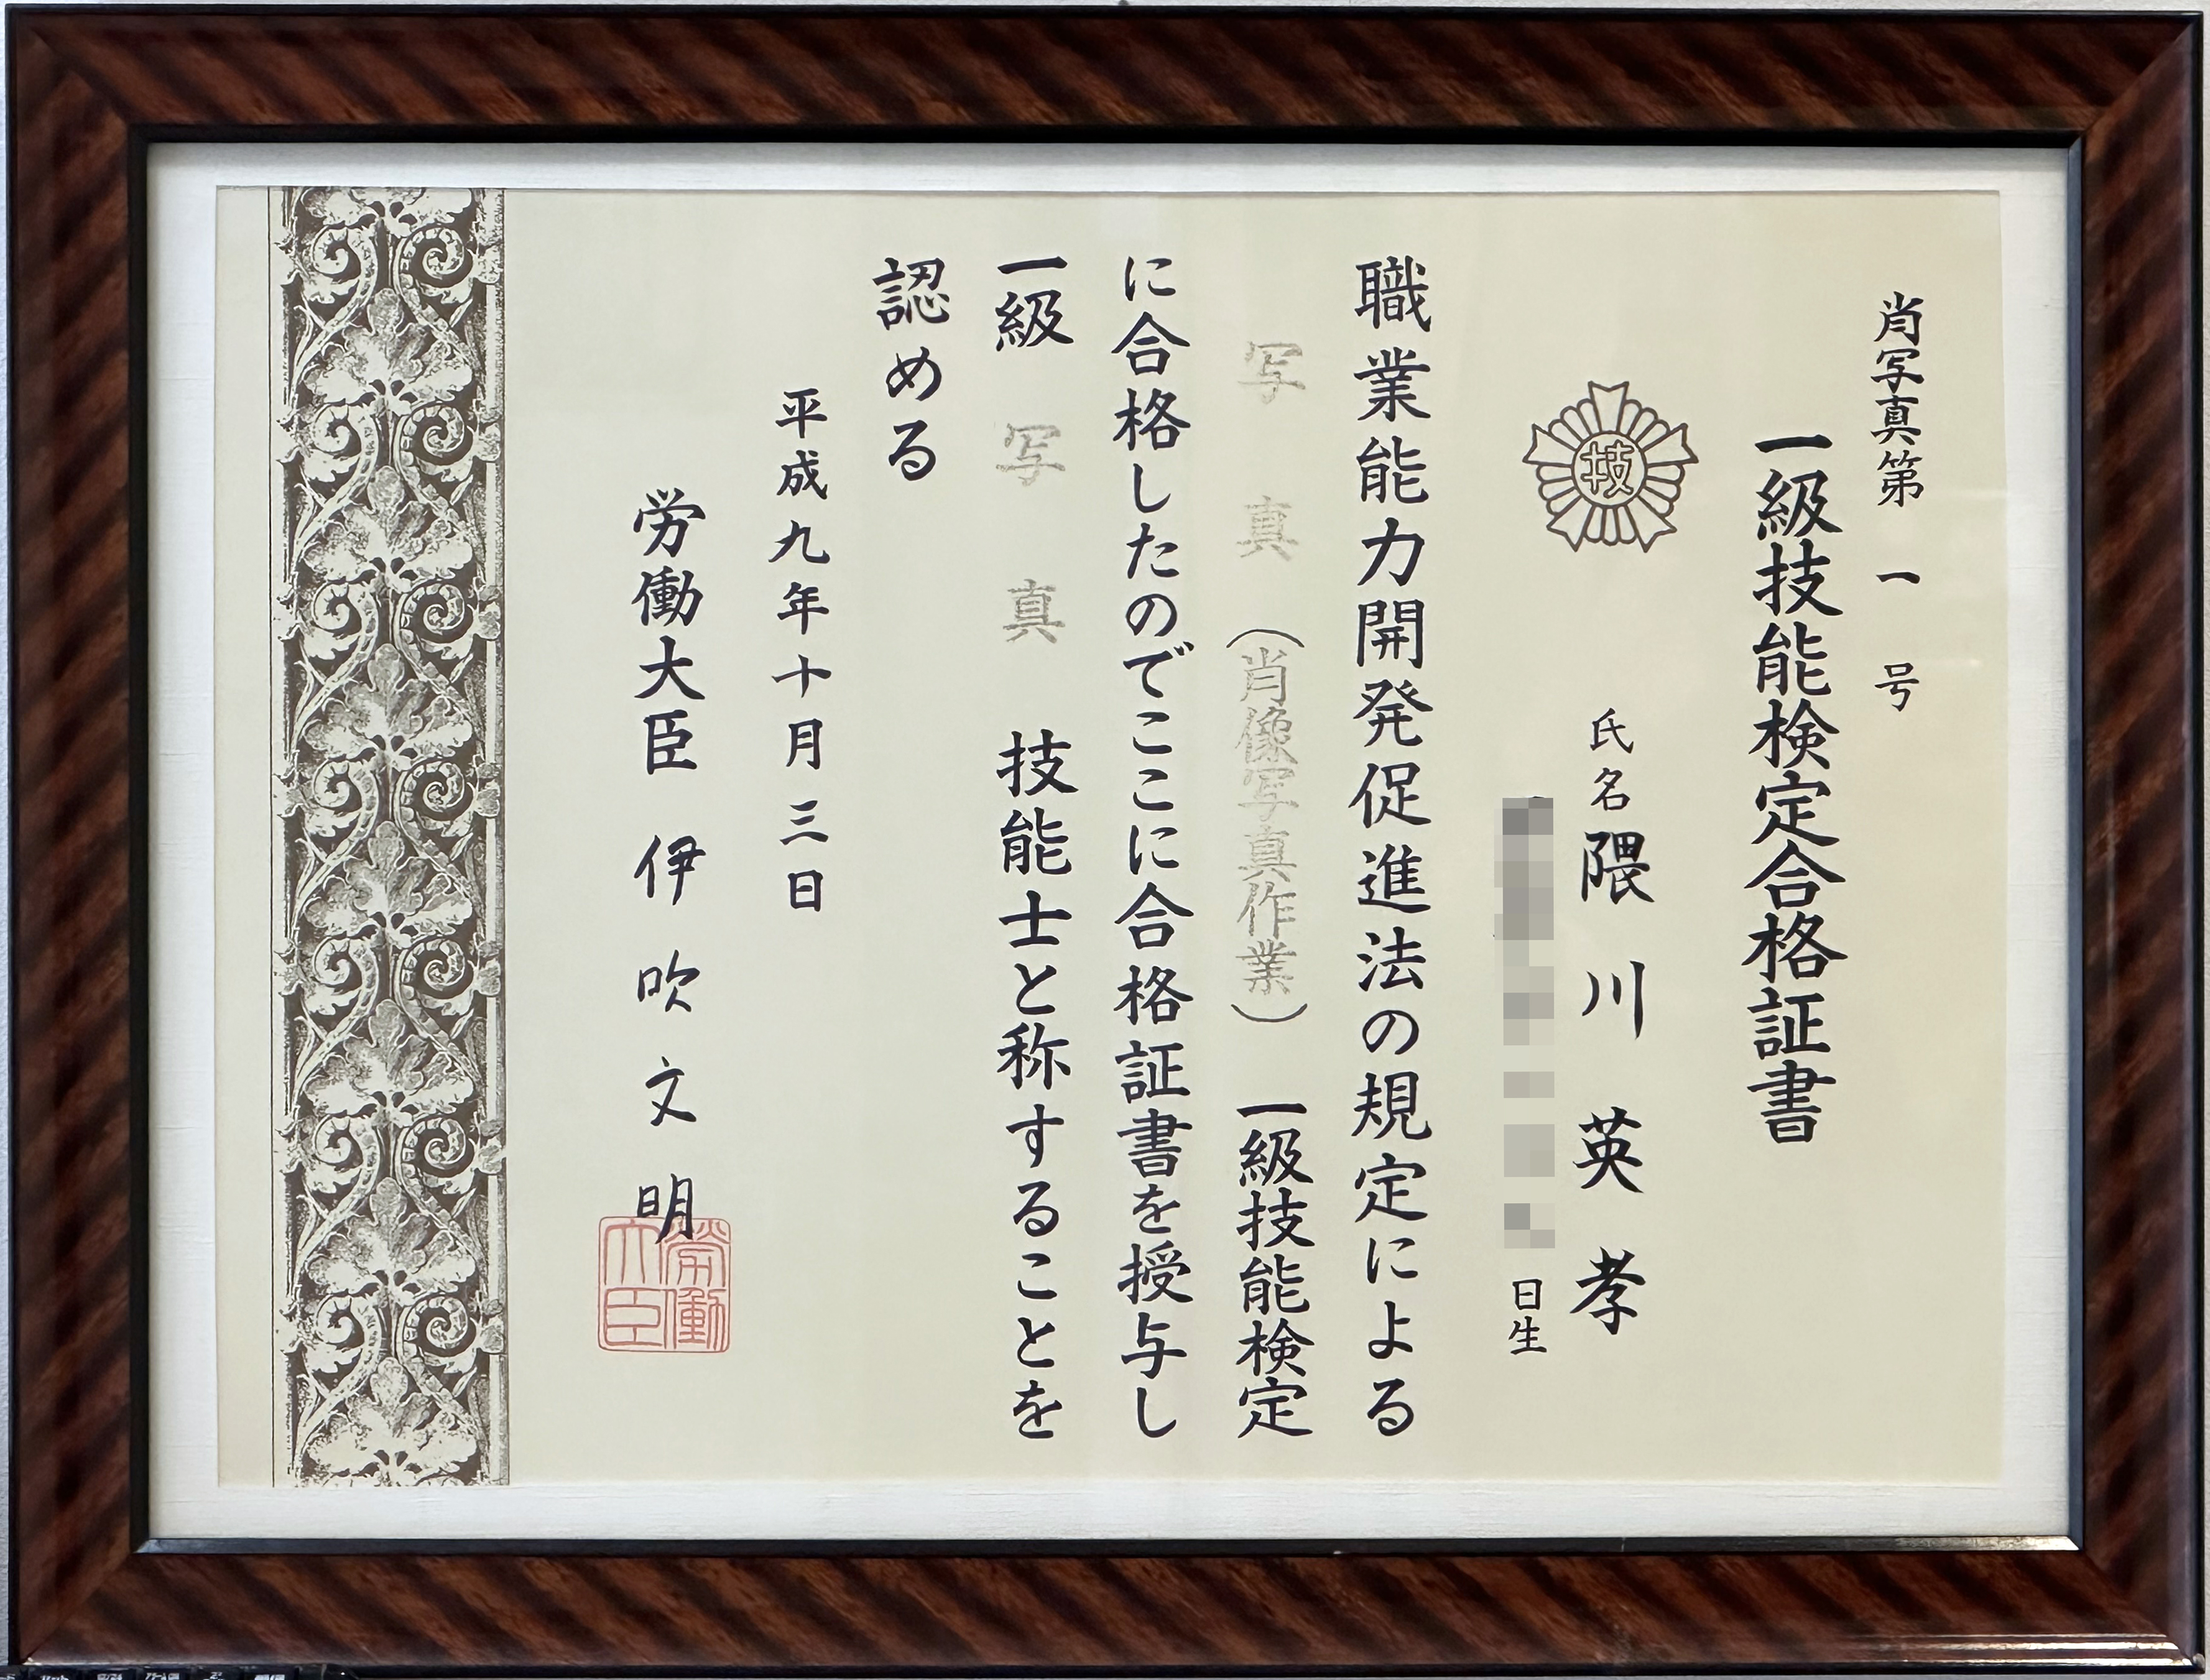 肖写真第 一 号
一級技能検定合格証書
技
氏名 隈川英孝
日生
職業能力開発促進法の規定による
写真(肖像写真作業)一級技能検定
に合格したのでここに合格証書を授与し
一級 写真 技能士と称することを
認める
平成九年十月三日
労働大臣 伊吹文明
労働大臣